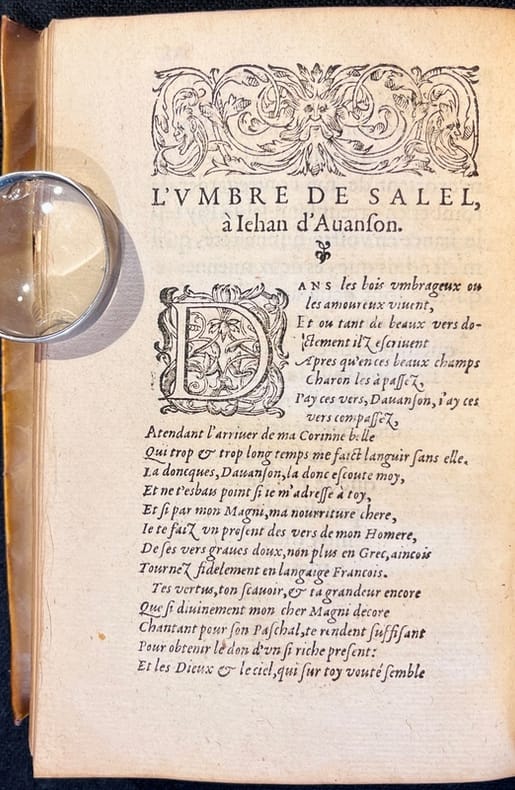 L'VMBRE DE SALEL,
à Iehan d'Auanson.
DANS les bois vmbrageux ou
les amoureux viuent,
Et ou tant de beaux vers do-
ctement ilz escriuent
Apres qu'en ces beaux champs
Charon les à passez,
I'ay ces vers, Dauanson, i'ay ces
vers compassez,
Atendant l'arriuer de ma Corinne belle
Qui trop & trop long temps me faict languir sans elle.
La doncques, Dauanson, la donc escoute moy,
Et ne t'esbais point si ie m'adresse à toy,
Et si par mon Magni, ma nourriture chere,
Ie te faiz vn present des vers de mon Homere,
De ses vers graues doux, non plus en Grec, aincois
Tournez fidelement en langaige Francois.
Tes vertus, ton scauoir, & ta grandeur encore
Que si diuinement mon cher Magni decore
Chantant pour son Paschal, te rendent suffisant
Pour obtenir le don d'vn si riche present:
Et les Dieux & le ciel, qui sur toy vouté semble